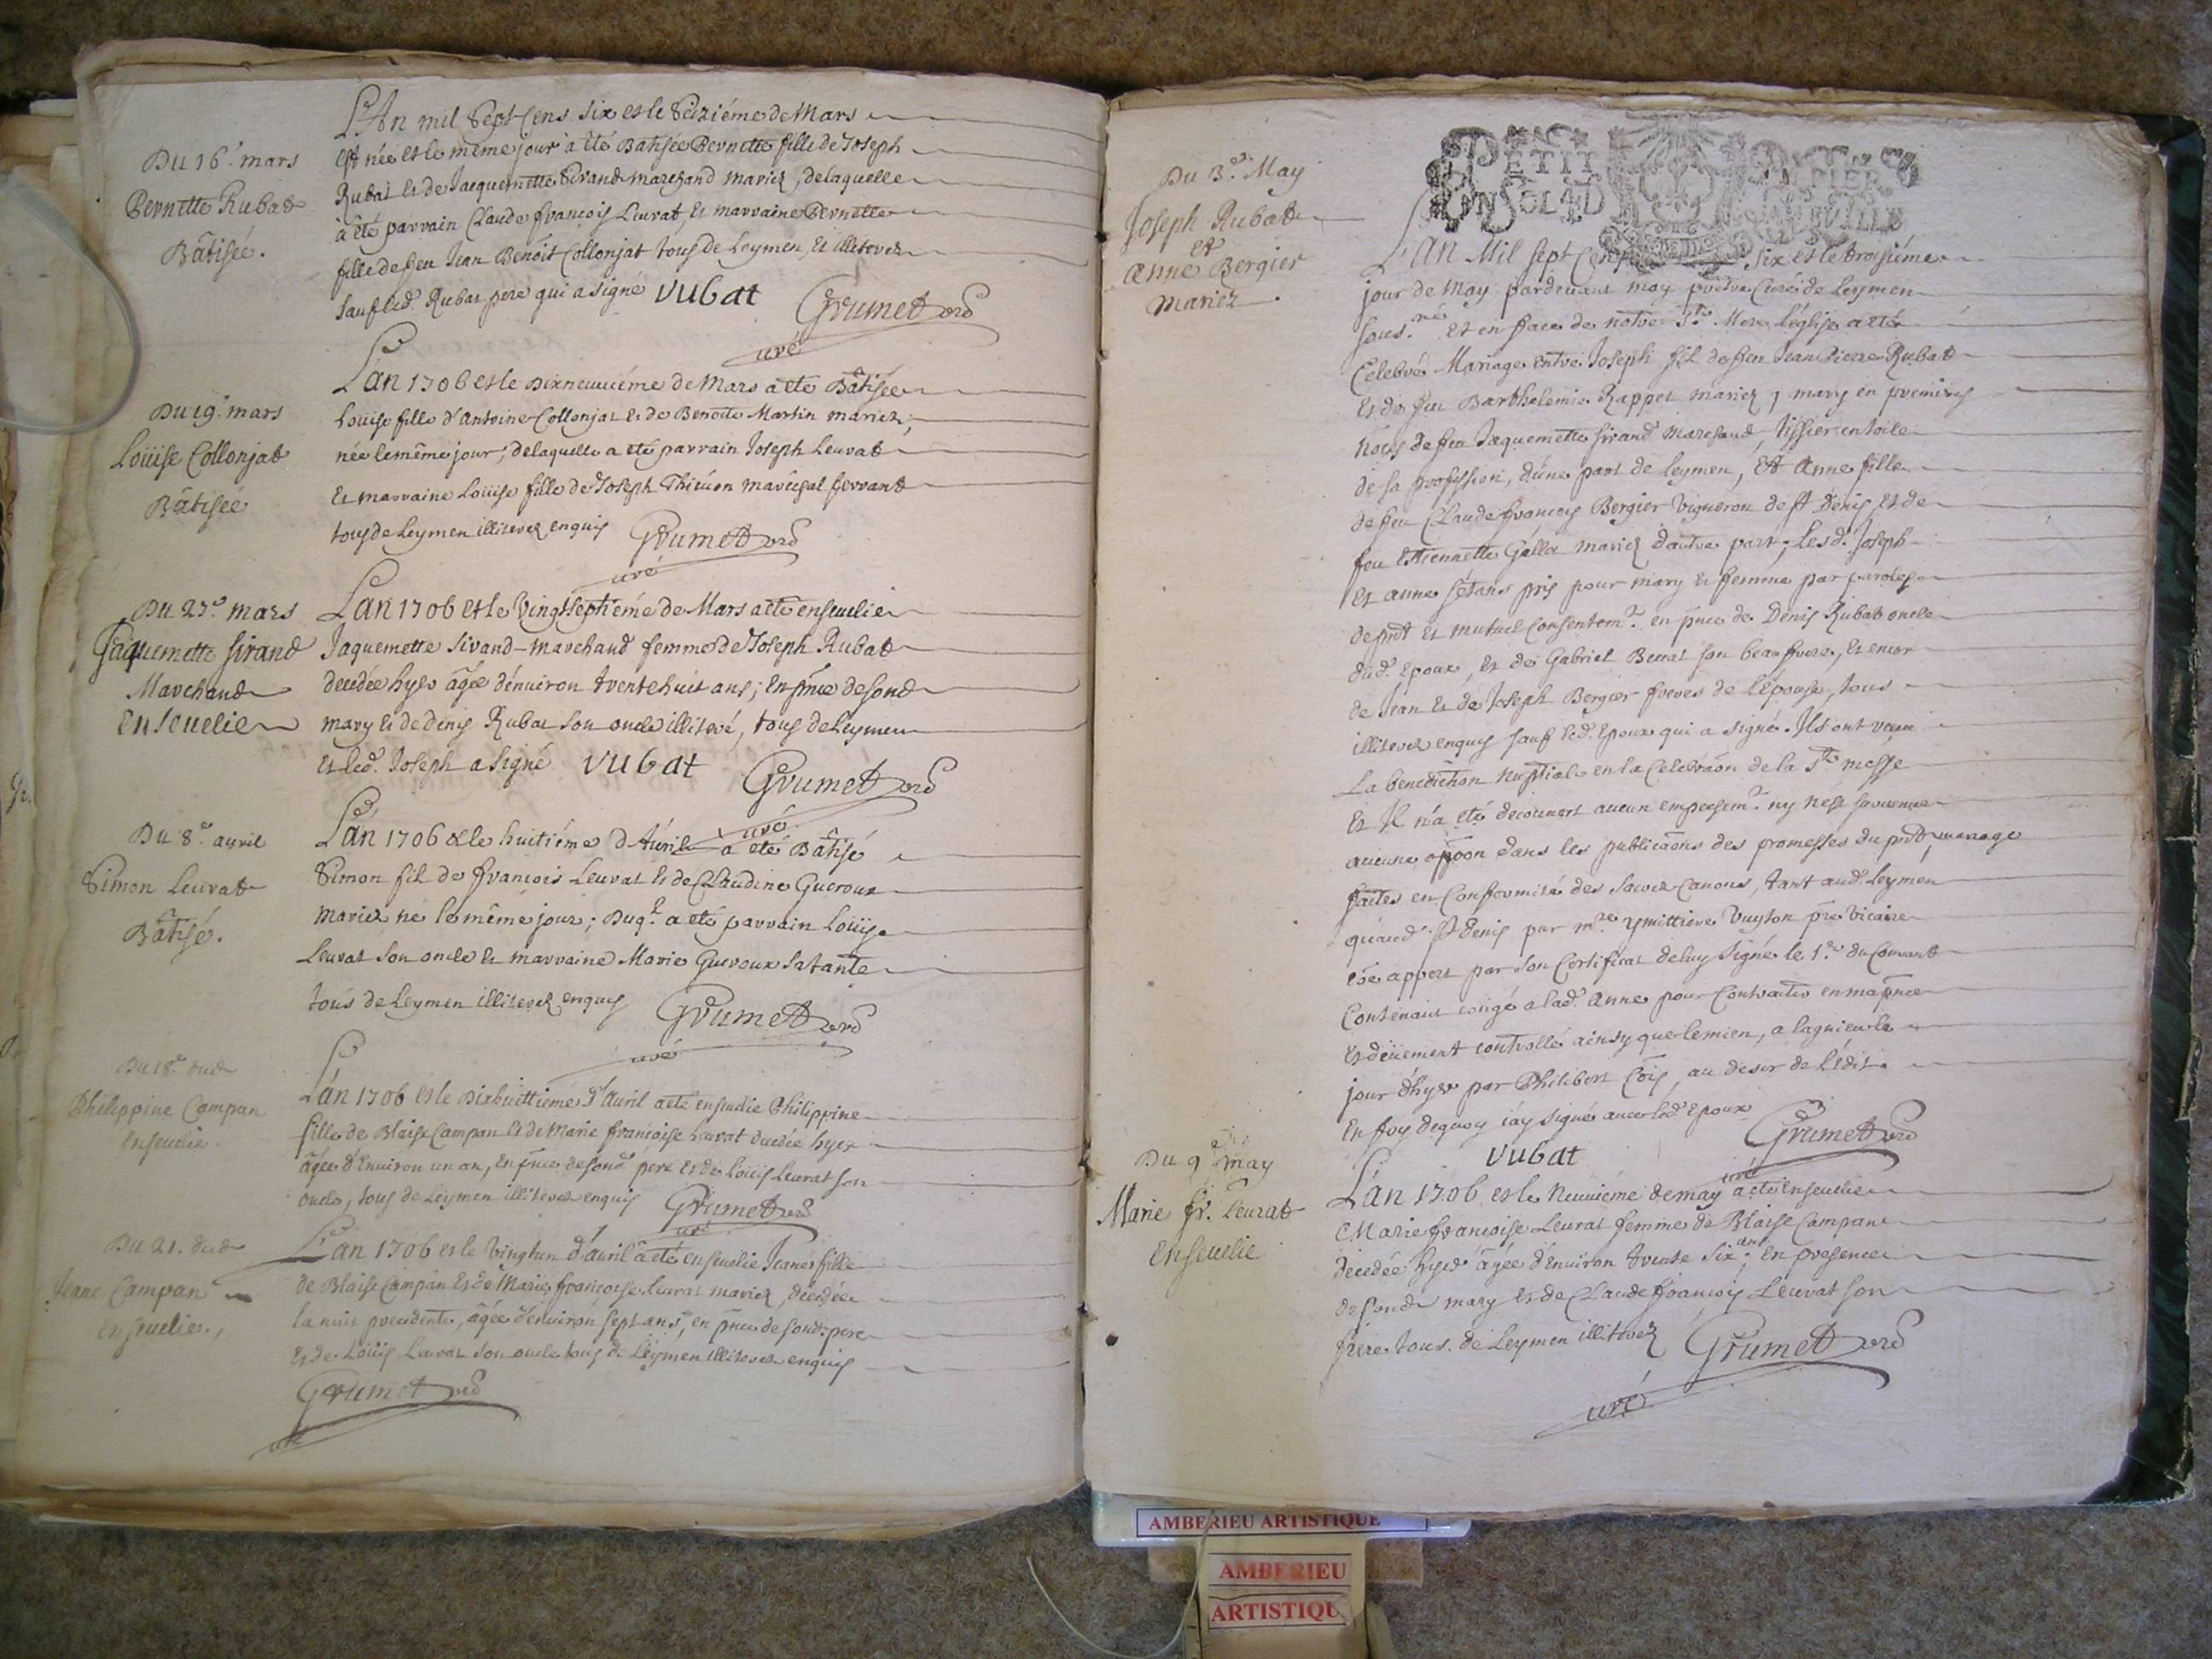 Du 16.e mars
Pernette Rubat
Bâtisée.
L'An mil Sept Cens Six et le Seiziéme de Mars
est née et le même jour à été Batisée Pernette fille de Joseph
Rubat et de Jacquemette Sirand marchand mariez, de laquelle
à été parrain Claude françois Leurat, et marraine Pernette
fille de feu Jean Benoit Collonjat tous de Leymen, et illiterez
sauf led. Rubat pere qui a signé rubat Grumet
curé
Du 19.e mars
Loüise Collonjat
Bâtisée
L'an 1706 et le Dixneuuiéme de Mars a été Bâtisée
Loüise fille d'Antoine Collonjat et de Benoite Martin mariez,
née le même jour, de laquelle a été parrain Joseph Leurat
et marraine Loüise fille de Joseph Thieuon maréchal ferrant
tous de Leymen illiterez enquis Grumet
curé
Du 27.e mars
Jaquemette Sirand
Marchand
Enseuelie
L'an 1706 et le Vingtseptiéme de Mars a été enseuelie
Jaquemette Sirand-marchand femme de Joseph Rubat
decedée hyer âgée d'énuiron trentehuit ans; en pnce de sond.
mary et de denis Rubat son oncle illiteré, tous de Leymen
et led. Joseph a signé rubat Grumet
curé
Du 8.e auril
Simon Leurat
Bâtisé.
L'an 1706 & le huitiéme d'Auril a été Bâtisé
Simon fil de françois Leurat et de Claudine Gueroux
mariez né le même jour; Duql. a été parrain Loüis
Leurat son oncle et marraine Marie Gueroux sa tante
tous de Leymen illiterez enquis Grumet
curé
Du 18.e dud.
Philippine Campan
enseuelie.
L'an 1706 et le Dixhuittiéme d'Auril a été enseuelie Philippine
fille de Blaise Campan et de Marie françoise Leurat decedée hyer
âgée d'Enuiron un an, en pnce de sond. pere et de Loüis Leurat son
oncle, tous de Leymen illiterez enquis Grumet
curé
Du 21. dud.
Jeane Campan
enseuelie.
L'an 1706 et le Vingtun d'auril a été enseuelie Jeane fille
de Blaise Campan et de Marie françoise Leurat mariez, decedée
la nuit precedente, âgée d'énuiron sept ans, en pnce de sond. pere
et de Loüis Leurat son oncle tous de Leymen illiterez enquis
Grumet
curé
PETIT PAPIER
Du 3.e May
Joseph Rubat
et
Anne Bergier
Mariez.
L'AN Mil sept Cens Six et le troisiéme
jour de May pardeuant moy pretre Curé de Leymen
sous.né et en face de notre S.te Mere L'église a été
Celebré Mariage entre Joseph fil de feu Jean Pierre Rubat
et de feu Barthelemie Rappet mariez, mary en premiers
noces de feu Jaquemette sirand Marchand, tissier en toile
de sa profession, d'une part de Leymen, Et Anne fille
de feu Claude françois Bergier Vigneron de st Denis, et de
feu Ettiennette Gallet mariez d'autre part; Lesd. Joseph
et anne s'étans pris pour mary et femme par paroles
de pnt et mutuel consentem.t en pnce de Denis Rubat oncle
dud. Epoux, et de Gabriel Beccat son beaufrere, et encor
de Jean et de Joseph Bergier freres de L'épouse, tous
illiterez enquis sauf led. Epoux qui a signé. Ils ont receu
La benediction nuptiale en la Celebraõn de la S.te messe
et Il n'a eté decouuert aucun empechem.t ny n'ést suruenue
aucune oppõon dans les publicaõns des promesses du pnt mariage
faites en Conformité des sacrez Canons, tant aud. Leymen
qu'aud. St denis par m.re ymittiere Vuyton pre Vicaire
côe appert par son Certificat de luy Signé le 1.er du Courant
Contenant congé a lad. Anne pour Contracter en ma pnce
et deüement controllé ainsy que le mien, a Lagnieu le
jour d'hyer par Philibert Cois, au desir de L'édit.
En foy dequoy j'ay signé auec led. Epoux Grumet
rubat curé
Du 9.e may
Marie fr. Leurat
Enseuelie
L'an 1706 et le Neuuiéme de may a été enseuelie
Marie françoise Leurat femme de Blaise Campan
decedée hyer âgée d'énuiron trente six ans; en presence
de sond. mary et de Claude françois Leurat son
frere tous de Leymen illiterez Grumet
curé
AMBERIEU ARTISTIQUE
AMBERIEU
ARTISTIQU